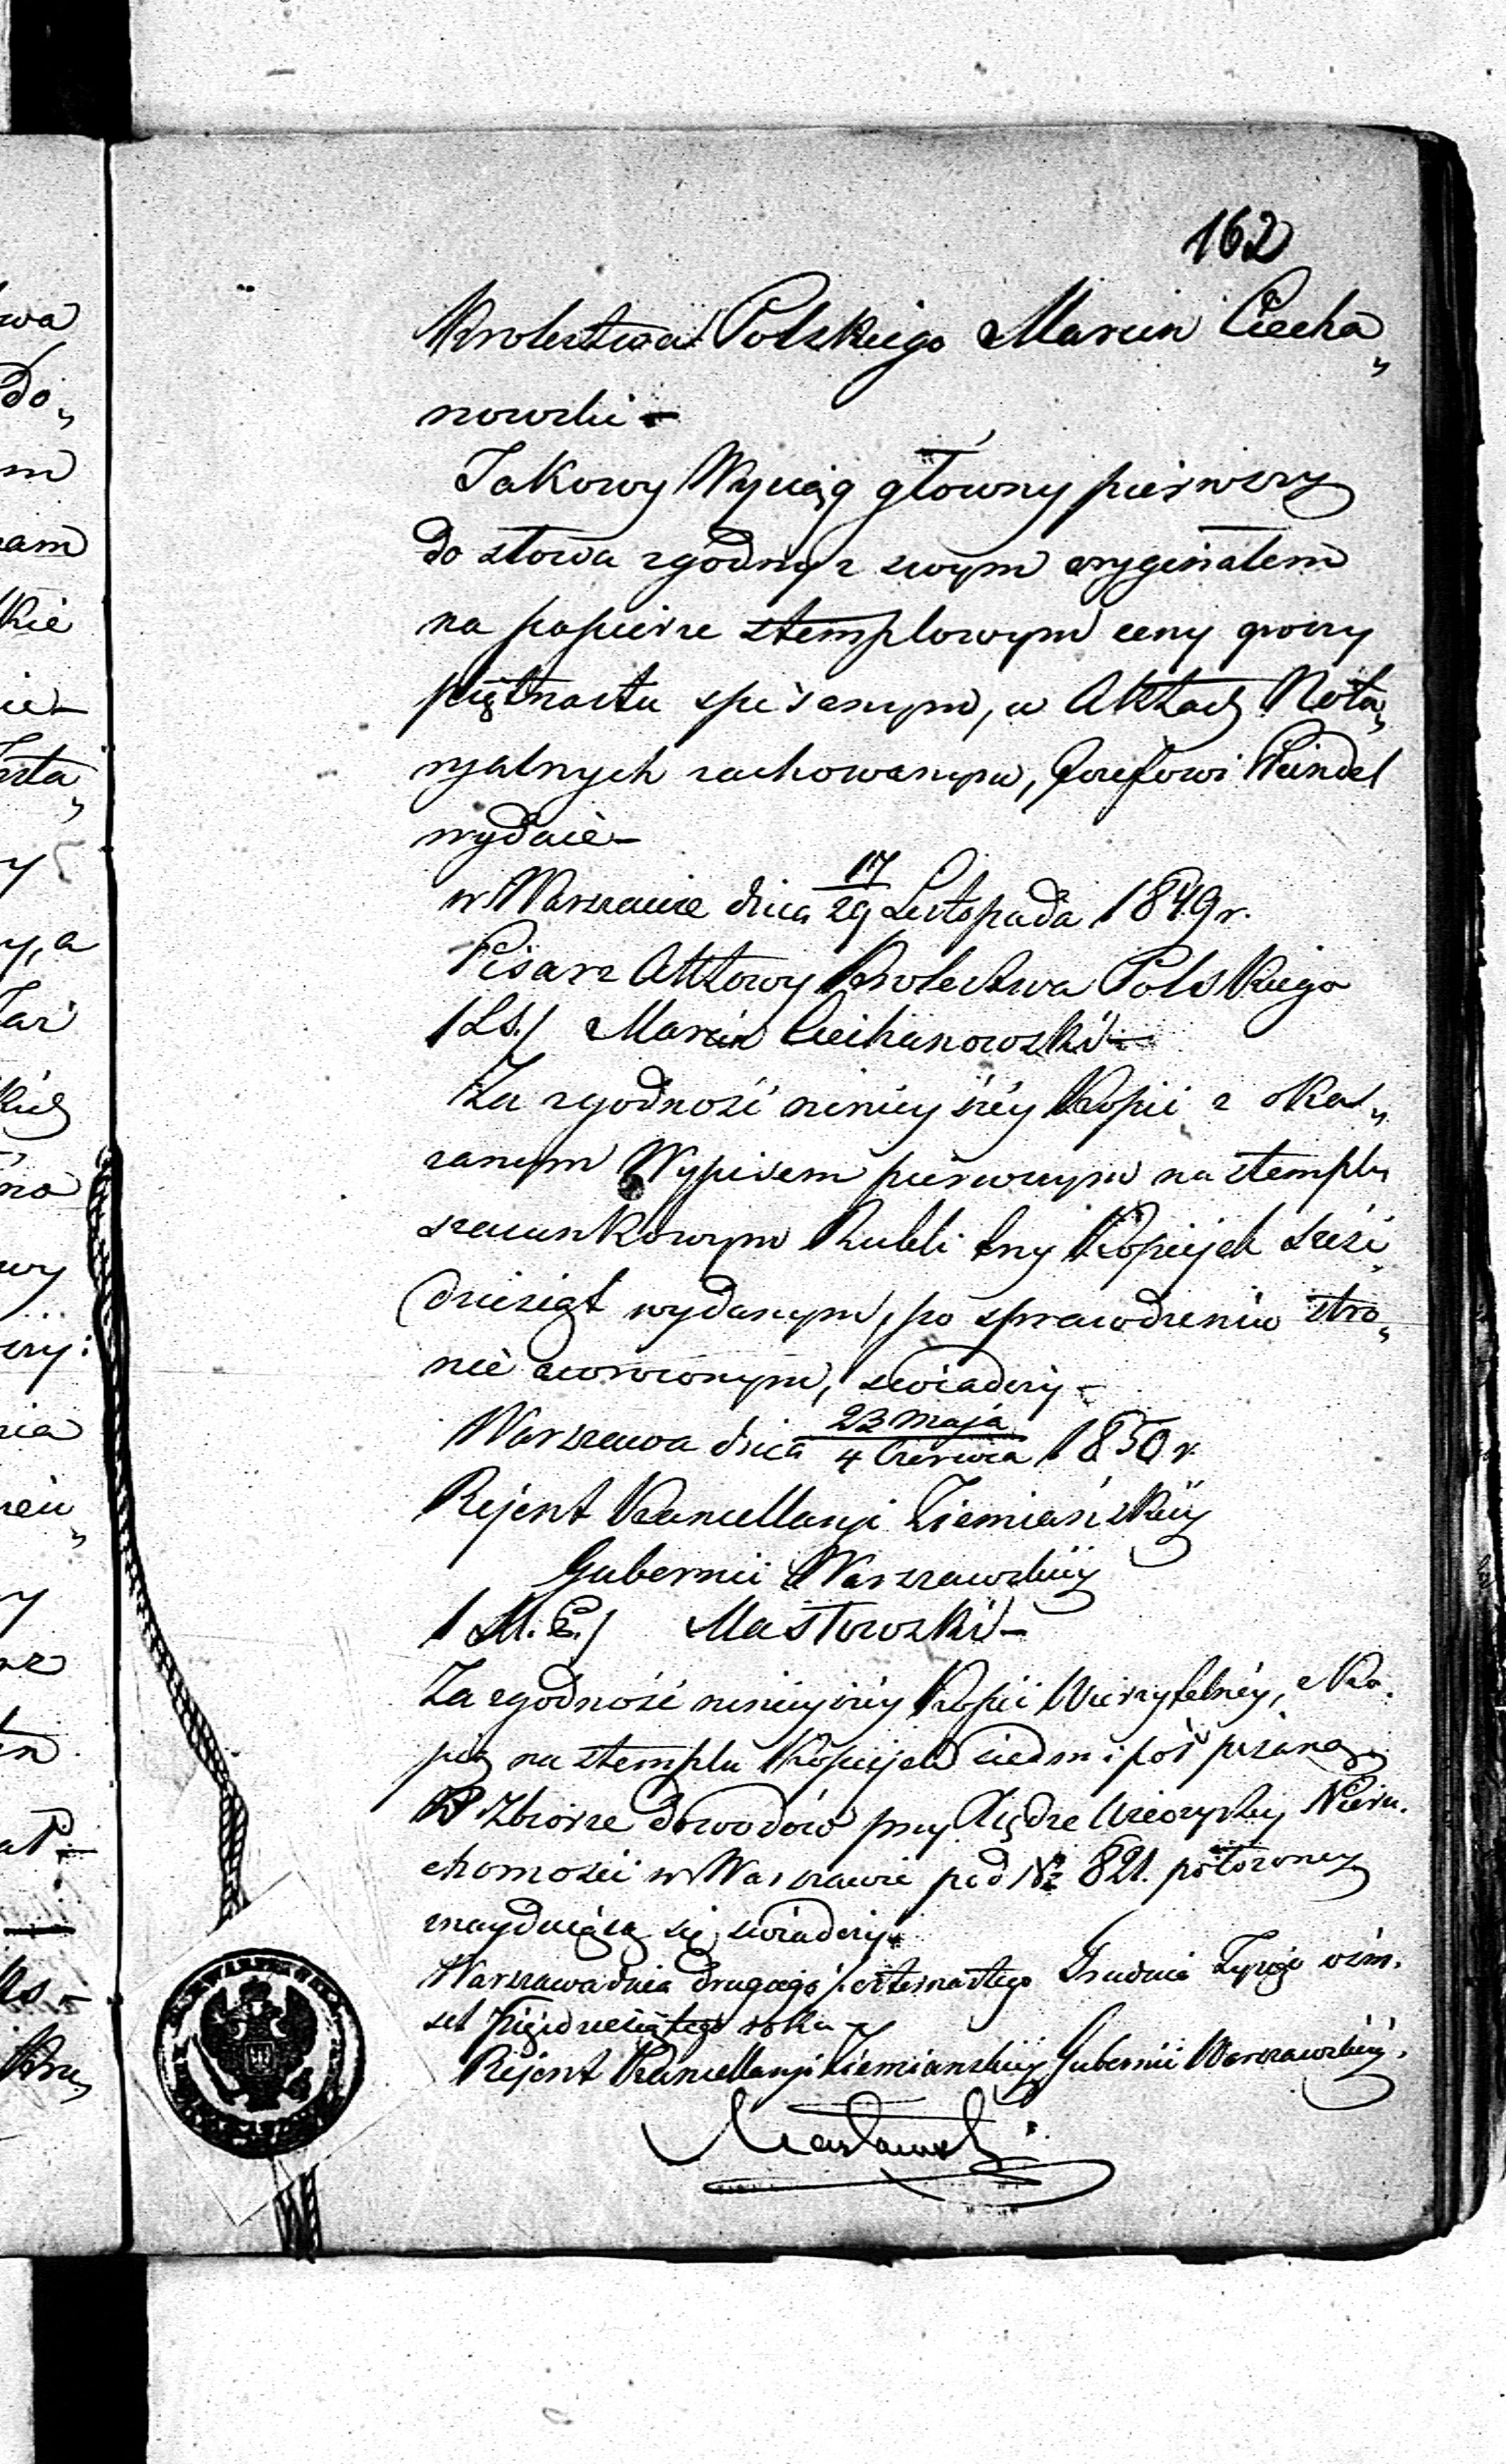 162
Krolestwa Polskiego Marcin Ciecha„
nowski –
Takowy Wyciąg główny pierwszy
do słowa zgodny z swym oryginałem
na papierze stemplowym ceny groszy
piętnastu spisanym, w Aktach Nota„
ryalnych zachowanym, Józefowi Weindel
wydaie –
w Warszawie dnia 17/29 Listopada 1849 r.
Pisarz Aktowy Krolestwa Polskiego
/LS./ Marcin Ciechanowski –
Za zgodność ninieyszéy Kopii z oka„
zanym Wypisem pierwszym na stemplu
szacunkowym Rubli trzy Kopiejek sześć„
dziesiąt wydanym, po sprawdzeniu stro„
nie zwroconym, swiadczy –
Warszawa dnia 23 Maja/4 Czerwca 1850 r
Rejent Kancellaryi Ziemiańskiéy
Gubernii Warszawskiéy
/M.P./ Masłowski –
Za zgodność ninieyszéy Kopii Wierzytelnéy, z Ko.
pią na stemplu Kopiejek siedm i poł pisaną
W Zbiorze dowodów przy Xiędze Wieczystey Nieru.
chomości w Warszawie pod No 821. położoney
znayduiącą się, swiadczy.
Warszawa dnia drugiego/czternastego Grudnia Tysiąc ośm.
set Pięćdziesiątego roku –
Rejent Kancellaryi Ziemianskiéy Gubernii Warszawskiéy.
Masłowski
wa
Do„
m
kie
y, a
wy
ria